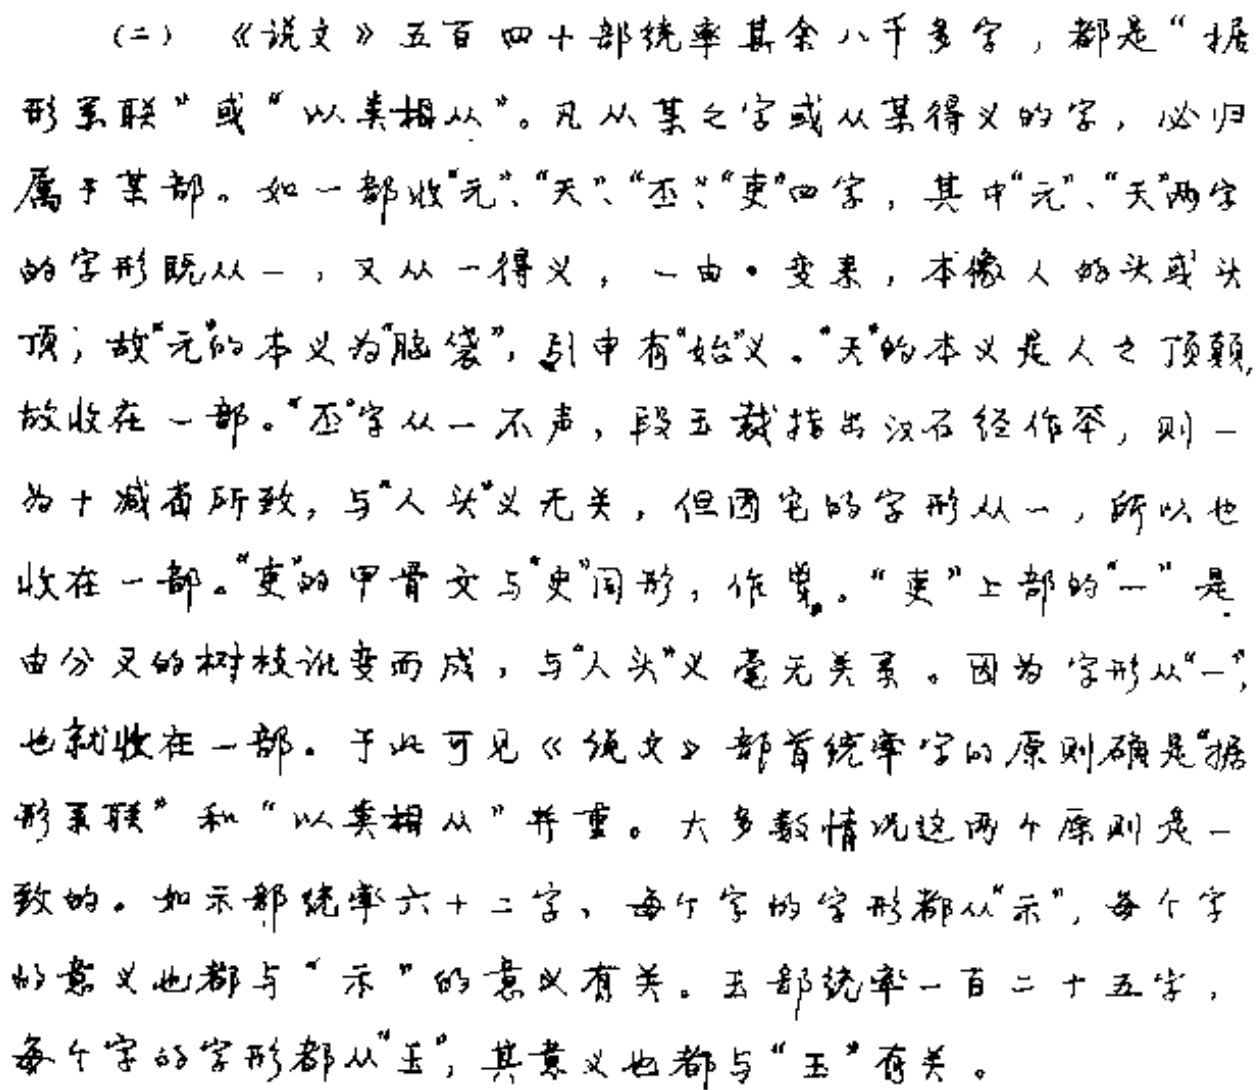 (二) 《说文》五百四十部统率其余八千多字，都是“据
形系联”或“以类相从”。凡从某之字或从某得义的字，必归
属于某部。如一部收“元”、“天”、“丕”、“吏”四字，其中“元”、“天”两字
的字形既从一，又从一得义，一由·变来，本像人的头或头
顶；故“元”的本义为“脑袋”，引申有“始”义。“天”的本义是人之顶颠，
故收在一部。“丕”字从一不声，段玉裁指出汉石经作㔻，则一
为十减省所致，与“人头”义无关，但因它的字形从一，所以也
收在一部。“吏”的甲骨文与“史”同形，作。“吏”上部的“一”是
由分叉的树枝讹变而成，与“人头”义毫无关系。因为字形从“一”，
也就收在一部。于此可见《说文》部首统率字的原则确是“据
形系联”和“以类相从”并重。大多数情况这两个原则是一
致的。如示部统率六十二字，每个字的字形都从“示”，每个字
的意义也都与“示”的意义有关。玉部统率一百二十五字，
每个字的字形都从“玉”，其意义也都与“玉”有关。